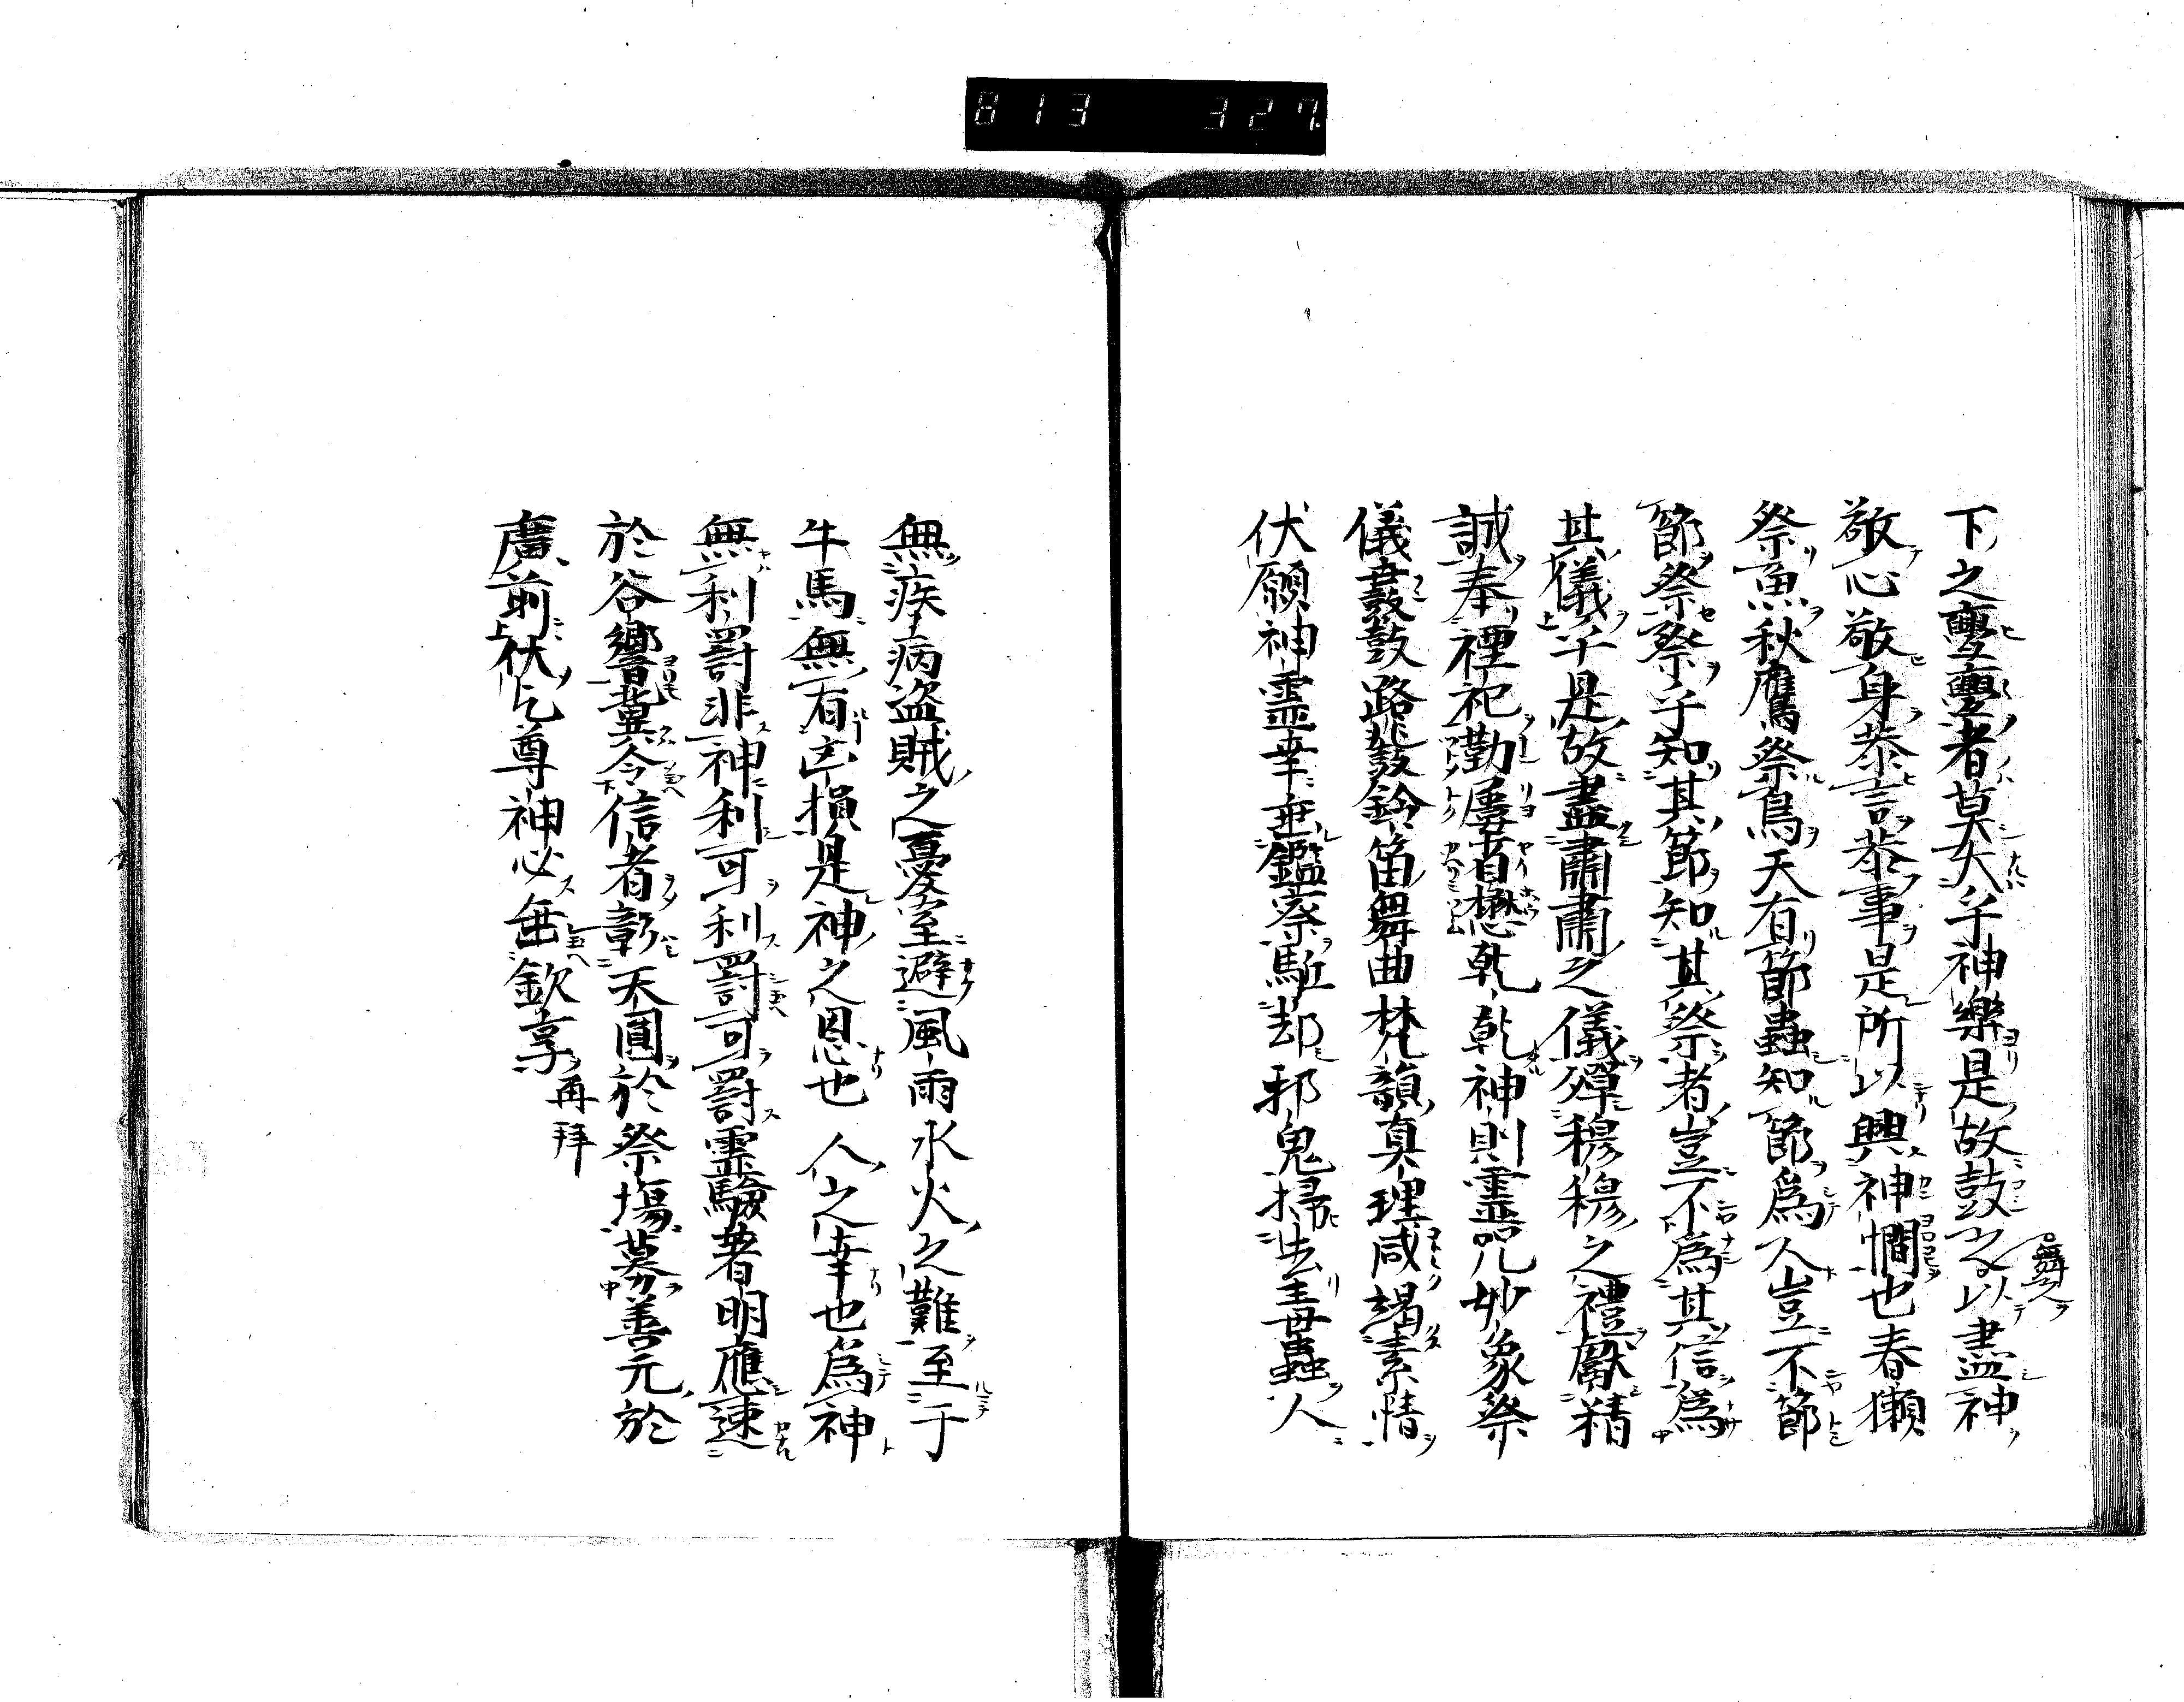 813 327.
下之亹亹者莫大乎神樂是故鼓之舞之以盡神
敬心敬身恭言恭事是所以興神憪也春獺
祭魚秋鷹祭鳥天有節蟲知節爲人豈不節
節祭祭乎知其節知其祭者豈不爲其信爲
其儀乎是故盡肅肅之儀殫穆穆之禮獻精
誠奉禋祀勤厚着懋乾乾神則靈咒妙象祭
儀鼖鼓路鼗鈴笛舞曲梵韻真理咸竭素情
伏願神霊幸垂鑑察駈却邪鬼掃法害蟲人
無疾病盜賊之憂室避風雨水火之難至于
牛馬無有亡損是神之恩也人之幸也爲神
無利罰非神利可利罰可罰霊驗著明應速
於谷響冀令信者彰天圓於祭場募善元於
廣前伏乞尊神必垂歆享再拜